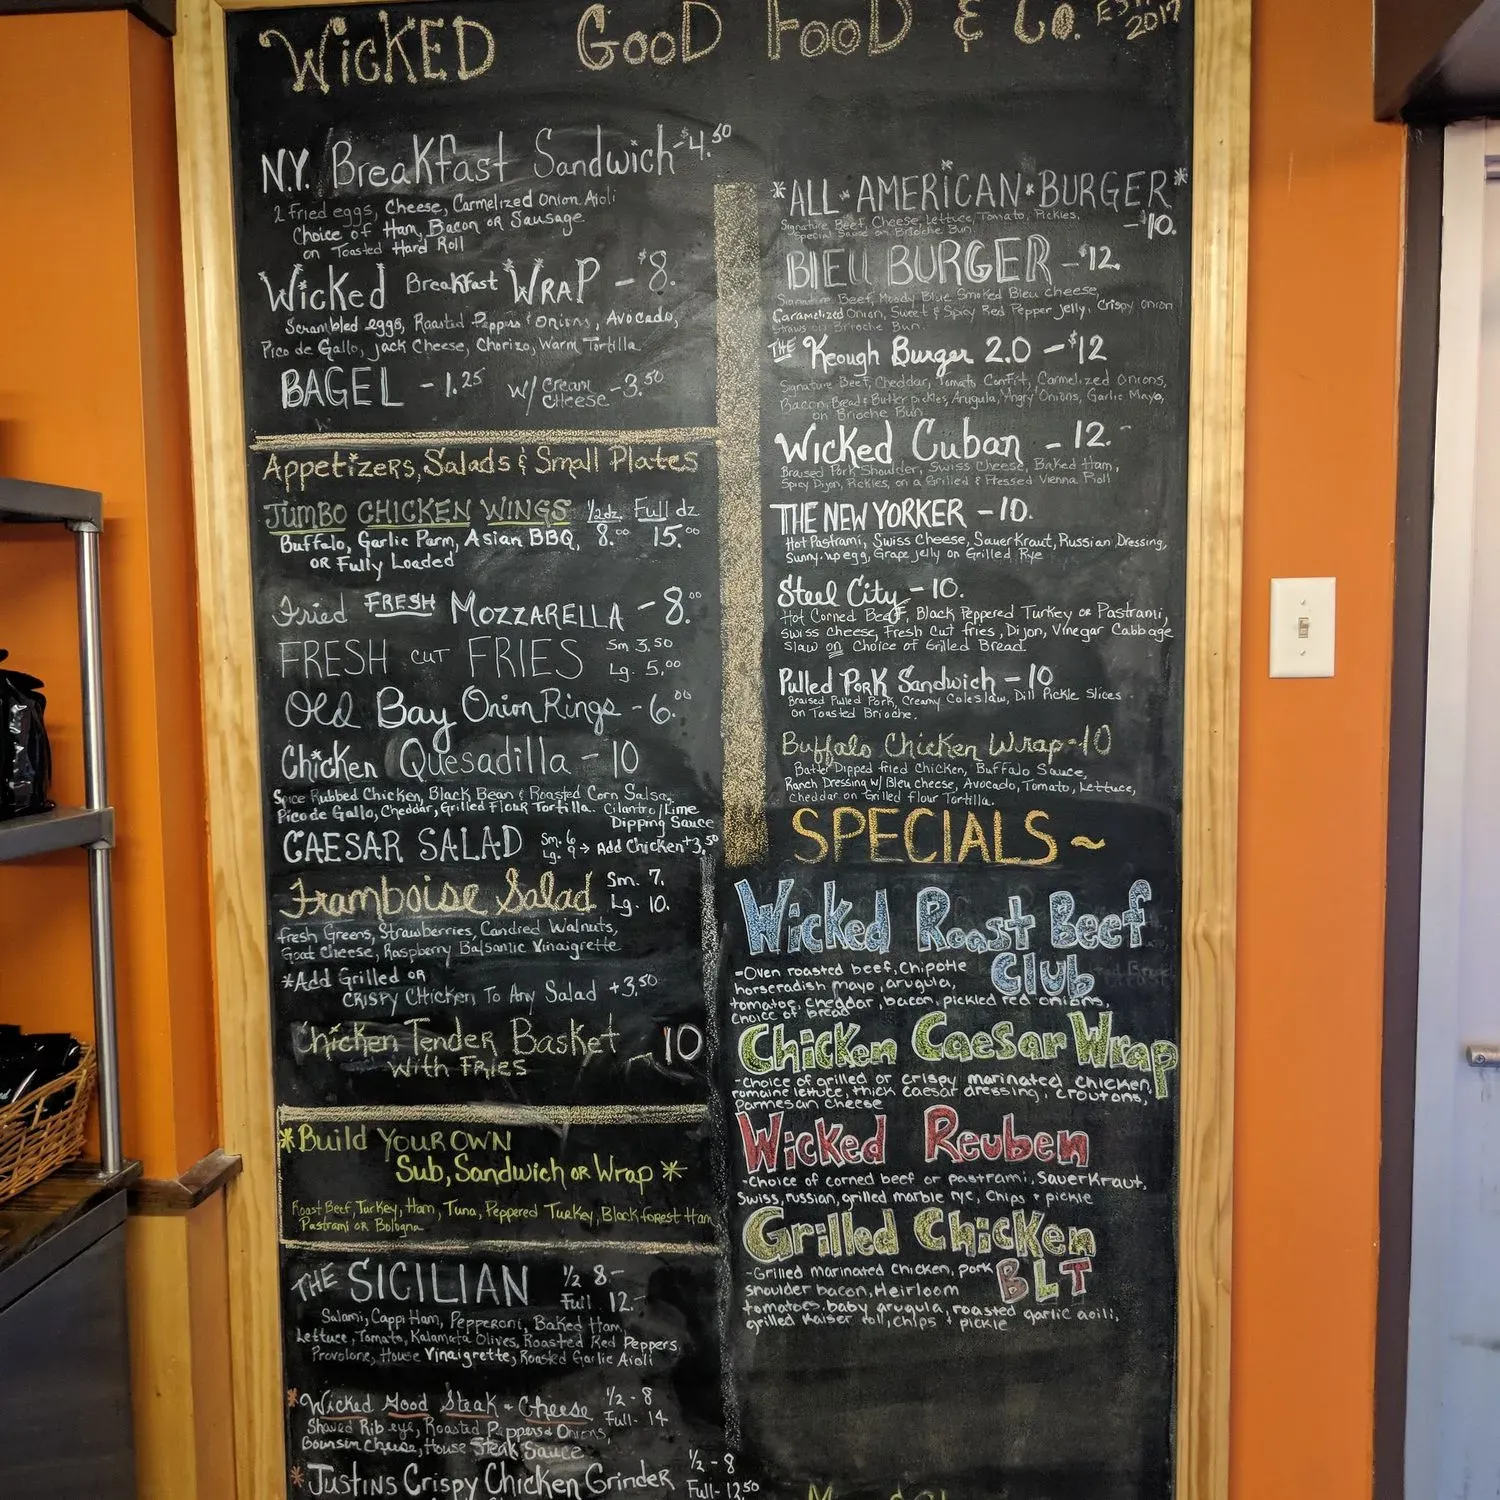 WiCKED GooD FooD & Co. EST. 2017
N.Y. Breakfast Sandwich - $4.50
2 Fried eggs, Cheese, Carmelized Onion Aioli
Choice of Ham, Bacon or Sausage
on Toasted Hard Roll
Wicked Breakfast WRAP - $8.
Scrambled eggs, Roasted Peppers & Onions, Avocado,
Pico de Gallo, jack Cheese, Chorizo, Warm Tortilla
BAGEL - 1.25 w/ Cream Cheese - 3.50
Appetizers, Salads & Small Plates
JUMBO CHICKEN WINGS 1/2 dz. Full dz
Buffalo, Garlic Parm, Asian BBQ, 8.00 15.00
OR Fully Loaded
Fried FRESH MOZZARELLA - 8.00
FRESH CUT FRIES Sm 3.50
Lg. 5.00
Old Bay Onion Rings - 6.00
Chicken Quesadilla - 10
Spice Rubbed Chicken, Black Bean & Roasted Corn Salsa,
Pico de Gallo, Cheddar, Grilled Flour Tortilla. Cilantro/Lime
Dipping Sauce
CAESAR SALAD Sm. 6
Lg. 9 → Add Chicken +3.50
Framboise Salad Sm. 7.
Lg. 10.
Fresh Greens, Strawberries, Candied Walnuts,
Goat Cheese, Raspberry Balsamic Vinaigrette
*Add Grilled OR
CRISPY CHICKEN To Any Salad +3.50
Chicken Tender Basket - 10
With FRIES
*Build YOUR OWN
Sub, Sandwich OR Wrap *
Roast Beef, Turkey, Ham, Tuna, Peppered Turkey, Black forest Ham,
Pastrami OR Bologna
THE SICILIAN 1/2 8-
Full 12.-
Salami, Cappi Ham, Pepperoni, Baked Ham,
Lettuce, Tomato, Kalamata Olives, Roasted Red Peppers
Provolone, House Vinaigrette, Roasted Garlic Aioli
*Wicked Good Steak & Cheese 1/2 - 8
Full- 14
Shaved Rib eye, Roasted Peppers & Onions,
Boursin Cheese, House Steak Sauce
*JUSTINS CRISPY CHICKEN GRINDER 1/2 - 8
Full- 12.50
*ALL*AMERICAN*BURGER*
-10.
Signature Beef, Cheese, Lettuce, Tomato, Pickles,
Special Sauce on Brioche Bun
BLEU BURGER - $12.
Signature Beef, Moody Blue Smoked Bleu Cheese,
Caramelized Onion, Sweet & Spicy Red Pepper Jelly, Crispy Onion
Straws on Brioche Bun.
THE Keough Burger 2.0 - $12
Signature Beef, Cheddar, Tomato Confit, Carmelized Onions,
Bacon, Bread & Butter pickles, Arugula, "Angry" Onions, Garlic Mayo,
on Brioche Bun
Wicked Cuban - 12.-
Braised Pork Shoulder, Swiss Cheese, Baked Ham,
Spicy Dijon, Pickles, on a Grilled & Pressed Vienna Roll
THE NEW YORKER - 10.
Hot Pastrami, Swiss Cheese, SauerKraut, Russian Dressing,
Sunny-up egg, Grape jelly on Grilled Rye
Steel City - 10.
Hot Corned Beef, Black Peppered Turkey OR Pastrami,
Swiss cheese, Fresh Cut fries, Dijon, Vinegar Cabbage
Slaw on Choice of Grilled Bread.
Pulled Pork Sandwich - 10
Braised Pulled Pork, Creamy Coleslaw, Dill Pickle Slices
on Toasted Brioche.
Buffalo Chicken Wrap - 10
Batter Dipped fried Chicken, Buffalo Sauce,
Ranch Dressing w/ Bleu cheese, Avocado, Tomato, Lettuce,
Cheddar on Grilled Flour Tortilla.
SPECIALS ~
Wicked Roast Beef
Club
-Oven roasted beef, Chipotle
horseradish mayo, arugula,
tomatoe, cheddar, bacon, pickled red onions,
choice of bread
Chicken Caesar Wrap
-Choice of grilled or crispy marinated chicken,
romaine lettuce, thick caesar dressing, croutons,
Parmesan cheese
Wicked Reuben
-Choice of corned beef or pastrami, SauerKraut,
Swiss, russian, grilled marble rye, Chips + pickle
Grilled Chicken
BLT
-Grilled marinated chicken, pork
shoulder bacon, Heirloom
tomatoes, baby arugula, roasted garlic aoili,
grilled Kaiser roll, chips + pickle